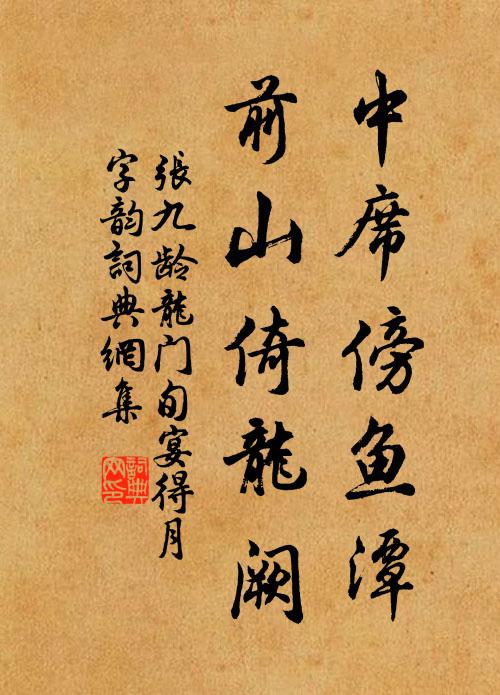 中席傍鱼潭
前山倚龍阙
張九龄龍门旬宴得月
字韵詞典網集
詞典
网印